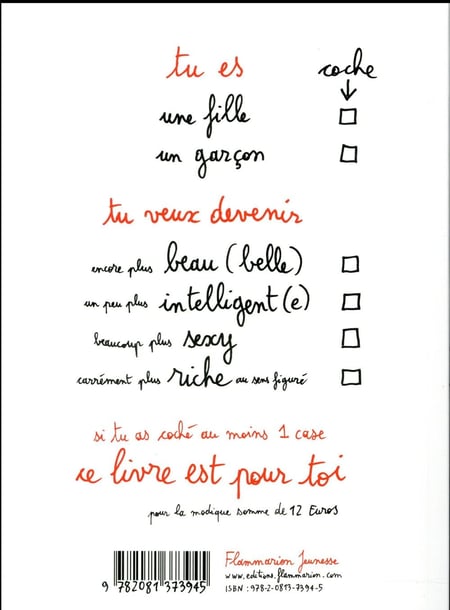 tu es coche
une fille
un garçon
tu veux devenir
encore plus beau (belle)
un peu plus intelligent(e)
beaucoup plus sexy
carrément plus riche au sens figuré
si tu as coché au moins 1 case
ce livre est pour toi
pour la modique somme de 12 Euros
Flammarion Jeunesse
www.editions.flammarion.com
ISBN : 978-2-0813-7394-5
9 782081 373945